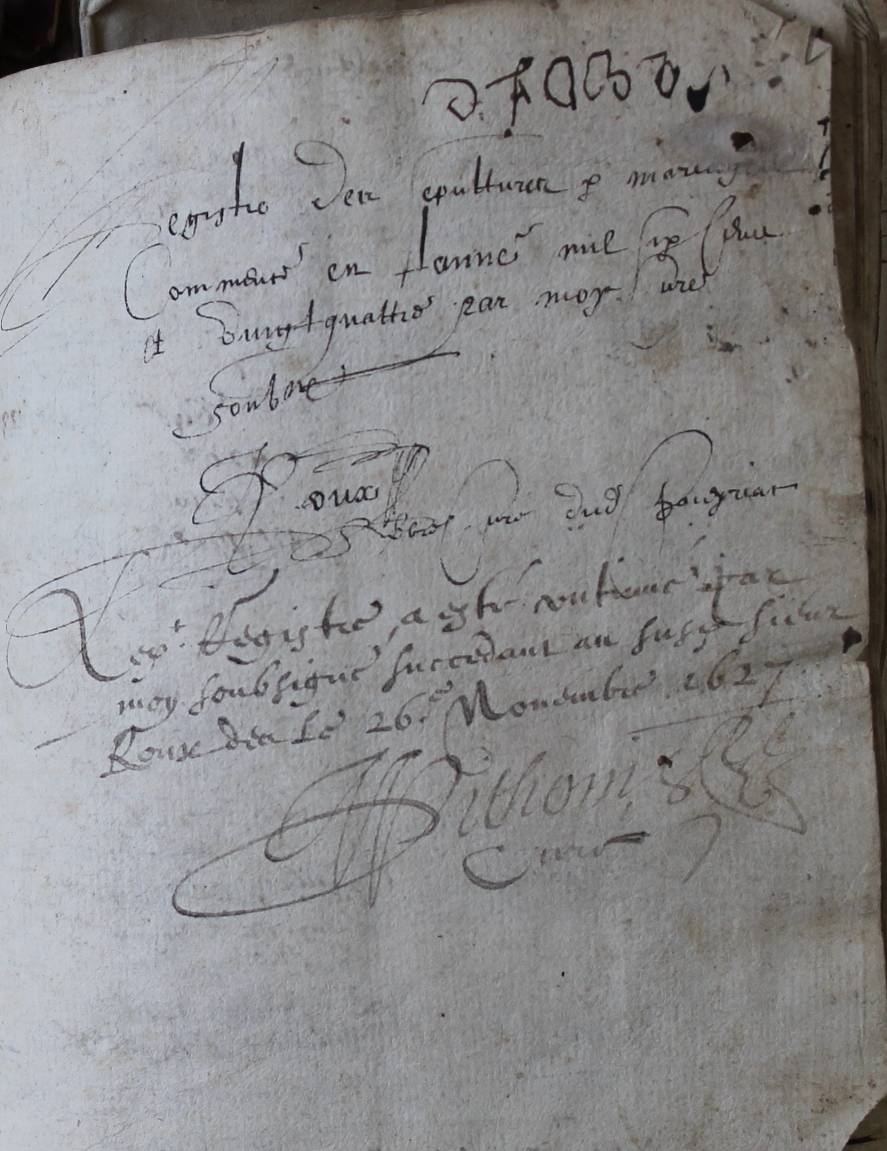 Registre des sepultures & mariages
Commencé en lanne mil six cens
et vingt quattre par moy cure
soubsne
Roux
pbre cure dud
Le pt. Registre a esté continué par
moy soubsigné succedant au susd sieur
Roux des le 26.e Novembre 1627
Pithoni
Curé